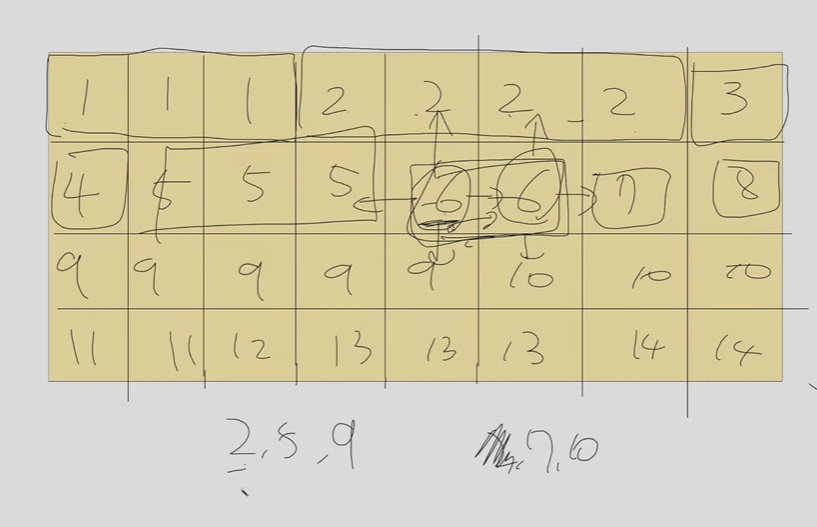 1 1 1 2 2 2 2 3
4 5 5 5 6 6 7 8
9 9 9 9 9 10 10 10
11 11 12 13 13 13 14 14
2,5,9 7,10